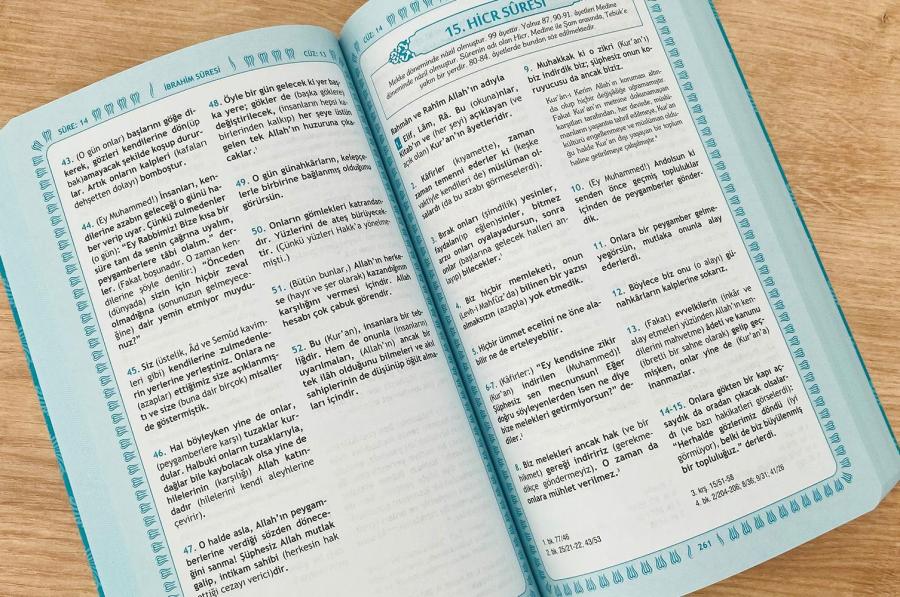 SÛRE: 14
İBRAHİM SÛRESİ
CÜZ: 13
43. (O gün onlar) başlarını göğe di-
kerek, gözleri kendilerine dön(üp
bak)amayacak şekilde koşup durur-
lar. Artık onların kalpleri (kafaları
dehşetten dolayı) bomboştur.
44. (Ey Muhammed!) İnsanları, ken-
dilerine azabın geleceği o günü ha-
ber verip uyar. Çünkü zulmedenler
(o gün): "Ey Rabbimiz! Bize kısa bir
süre tanı da senin çağrına uyalım,
peygamberlere tâbi olalım." der-
ler. (Fakat boşunadır. O zaman ken-
dilerine şöyle denilir:) "Önceden
(dünyada) sizin için hiçbir zeval
olmadığına (sonunuzun gelmeyece-
ğine) dair yemin etmiyor muydu-
nuz?"
45. Siz (üstelik, Âd ve Semûd kavim-
leri gibi) kendilerine zulmedenle-
rin yerlerine yerleştiniz. Onlara ne
(azaplar) ettiğimiz size açıklanmış-
tı ve size (buna dair birçok) misaller
de göstermiştik.
46. Hal böyleyken yine de onlar,
(peygamberlere karşı) tuzaklar kur-
dular. Halbuki onların tuzaklarıyla,
dağlar bile kaybolacak olsa yine de
hilelerinin (karşılığı) Allah katın-
dadır (hilelerini kendi aleyhlerine
çevirir).
47. O halde asla, Allah'ın peygam-
berlerine verdiği sözden dönece-
ğini sanma! Şüphesiz Allah mutlak
galip, intikam sahibi (herkesin hak
ettiği cezayı verici)dir.
48. Öyle bir gün gelecek ki yer baş-
ka yere; gökler de (başka göklere)
değiştirilecek, (insanların hepsi ka-
birlerinden kalkıp) her şeye üstün
gelen tek Allah'ın huzuruna çıka-
caklar.¹
49. O gün günahkârların, kelepçe-
lerle birbirine bağlanmış olduğunu
görürsün.
50. Onların gömlekleri katrandan-
dır. Yüzlerini de ateş bürüyecek-
tir. (Çünkü yüzleri Hakk'a yönelme-
mişti.)
51. (Bütün bunlar,) Allah'ın herke-
se (hayır ve şer olarak) kazandığının
karşılığını vermesi içindir. Allah
hesabı çok çabuk görendir.
52. Bu (Kur'an), insanlara bir teb-
liğdir. Hem de onunla (insanların)
uyarılmaları, (Allah'ın) ancak bir
tek ilâh olduğunu bilmeleri ve akıl
sahiplerinin de düşünüp öğüt alma-
ları içindir.
CÜZ: 14
15. HİCR SÛRESİ
Mekke döneminde nâzil olmuştur. 99 âyettir. Yalnız 87, 90-91. âyetleri Medine
döneminde nâzil olmuştur. Sûrenin adı olan Hicr, Medine ile Şam arasında, Tebük'e
yakın bir yerdir. 80-84. âyetlerde bundan söz edilmektedir.
Rahmân ve Rahîm Allah'ın adıyla
1. Elif, Lâm, Râ. Bu (okuna)nlar,
Kitab'ın ve (her şeyi) açıklayan (ve
açık olan) Kur'an'ın âyetleridir.
2. Kâfirler (kıyamette), zaman
zaman temenni ederler ki (keşke
vaktiyle kendileri de) müslüman ol-
salardı (da bu azabı görmeselerdi).
3. Bırak onları (şimdilik) yesinler,
faydalan(ıp eğlen)sinler, bitmez
arzu onları oyalayadursun, sonra
onlar (başlarına gelecek halleri an-
layıp) bilecekler.¹
4. Biz hiçbir memleketi, onun
(Levh-i Mahfûz'da) bilinen bir yazısı
olmaksızın (azapla) yok etmedik.
5. Hiçbir ümmet ecelini ne öne ala-
bilir ne de erteleyebilir.
6-7. (Kâfirler:) "Ey kendisine zikir
(Kur'an) indirilen (Muhammed)!
Şüphesiz sen mecnunsun! Eğer
doğru söyleyenlerden isen ne diye
bize melekleri getirmiyorsun?" de-
diler.²
8. Biz melekleri ancak hak (ve bir
hikmet) gereği indiririz (gerekme-
dikçe göndermeyiz). O zaman da
onlara mühlet verilmez.³
9. Muhakkak ki o zikri (Kur'an'ı)
biz indirdik biz; şüphesiz onun ko-
ruyucusu da ancak biziz.
Kur'an-ı Kerim Allah'ın koruması altın-
da olup hiçbir değişikliğe uğramamıştır.
Fakat Kur'an'ın metnine dokunamayan
karşıtları tarafından, her devirde, müslü-
manların yaşantısı tahrif edilmeye, Kur'an
kültürü engellenmeye ve müslüman oldu-
ğu halde Kur'an dışı yaşayan bir toplum
haline getirilmeye çalışılmıştır.⁴
10. (Ey Muhammed!) Andolsun ki
senden önce geçmiş topluluklar
içinden de peygamberler gönder-
dik.
11. Onlara bir peygamber gelme-
yegörsün, mutlaka onunla alay
ederlerdi.
12. Böylece biz onu (o alayı) gü-
nahkârların kalplerine sokarız.
13. (Fakat) evvelkilerin (inkâr ve
alay etmeleri yüzünden Allah'ın ken-
dilerini mahvetme) âdeti ve kanunu
(ibretli bir sahne olarak) gelip geç-
mişken, onlar yine de (Kur'an'a)
inanmazlar.
14-15. Onlara gökten bir kapı aç-
saydık da oradan çıkacak olsalar-
dı (ve bazı hakikatleri görselerdi);
"Herhalde gözlerimiz döndü (iyi
görmüyor) belki de biz büyülenmiş
bir topluluğuz." derlerdi.
1. bk. 77/46
2. bk. 25/21-22; 43/53
3. krş. 15/51-58
4. bk. 2/204-206; 8/36; 9/31; 41/26
261